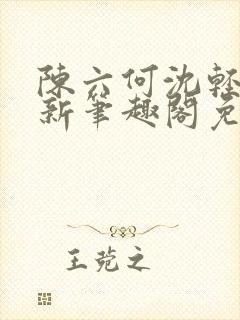 陳六何沈輕
新筆趣閣免
王菀之